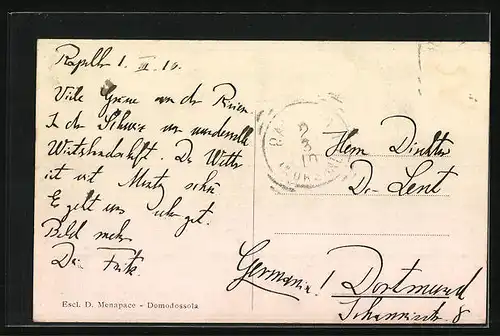 Rapallo 1. III. 10.
Viele Grüsse von der Reise.
In der Schweiz war wundervolle
Winterlandschaft. Das Wetter
ist seit schön
Es geht uns sehr gut.
Bald mehr
Dein Fritz
Herrn Direktor
Dr. Lent
Germania! Dortmund
8
Escl. D. Menapace - Domodossola